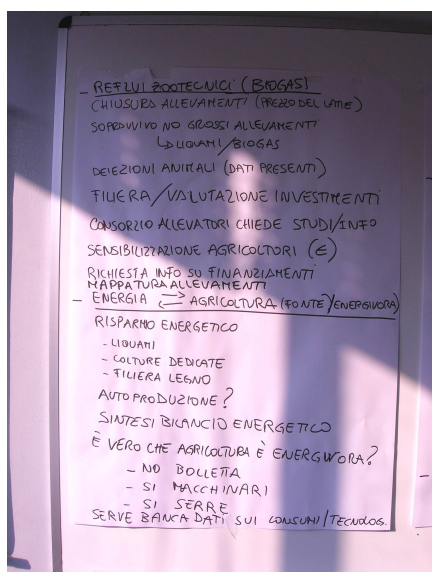 - REFLUI ZOOTECNICI (BIOGAS)
CHIUSURA ALLEVAMENTI (PREZZO DEL LATTE)
SOPRAVVIVONO GROSSI ALLEVAMENTI
↳ LIQUAMI/BIOGAS
DEIEZIONI ANIMALI (DATI PRESENTI)
FILIERA/VALUTAZIONE INVESTIMENTI
CONSORZIO ALLEVATORI CHIEDE STUDI/INFO
SENSIBILIZZAZIONE AGRICOLTORI (€)
RICHIESTA INFO SU FINANZIAMENTI
MAPPATURA ALLEVAMENTI
- ENERGIA ⇄ AGRICOLTURA (FONTE/ENERGIVORA)
RISPARMIO ENERGETICO
- LIQUAMI
- COLTURE DEDICATE
- FILIERA LEGNO
AUTOPRODUZIONE?
SINTESI BILANCIO ENERGETICO
È VERO CHE AGRICOLTURA È ENERGIVORA?
- NO BOLLETTA
- SI MACCHINARI
- SI SERRE
SERVE BANCA DATI SUI CONSUMI/TECNOLOG.